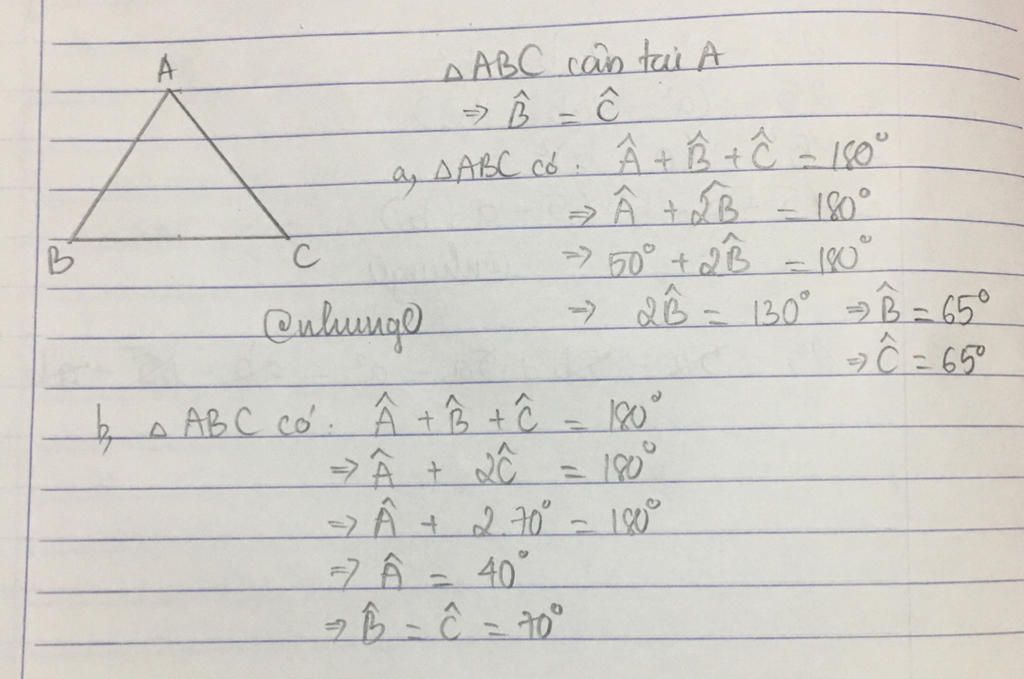 A
B
C
△ABC cân tại A
⇒ B̂ = Ĉ
a, △ABC có: Â + B̂ + Ĉ = 180°
⇒ Â + 2B̂ = 180°
⇒ 50° + 2B̂ = 180°
⇒ 2B̂ = 130° ⇒ B̂ = 65°
⇒ Ĉ = 65°
@nhung0
b, △ABC có: Â + B̂ + Ĉ = 180°
⇒ Â + 2Ĉ = 180°
⇒ Â + 2.70° = 180°
⇒ Â = 40°
⇒ B̂ = Ĉ = 70°